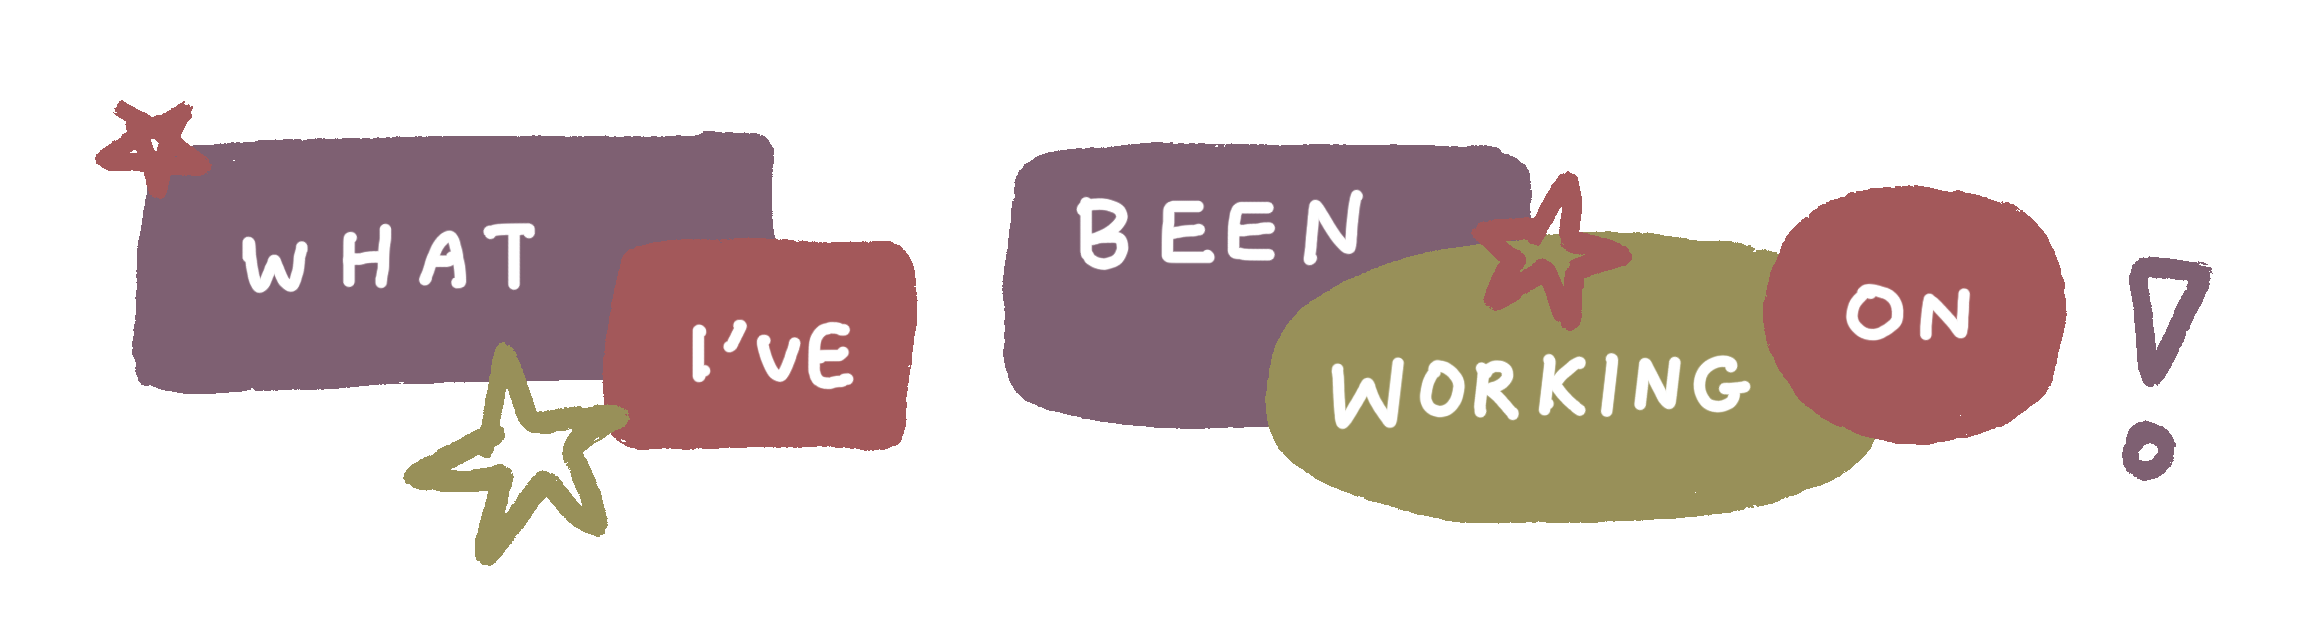 WHAT I'VE BEEN WORKING ON!